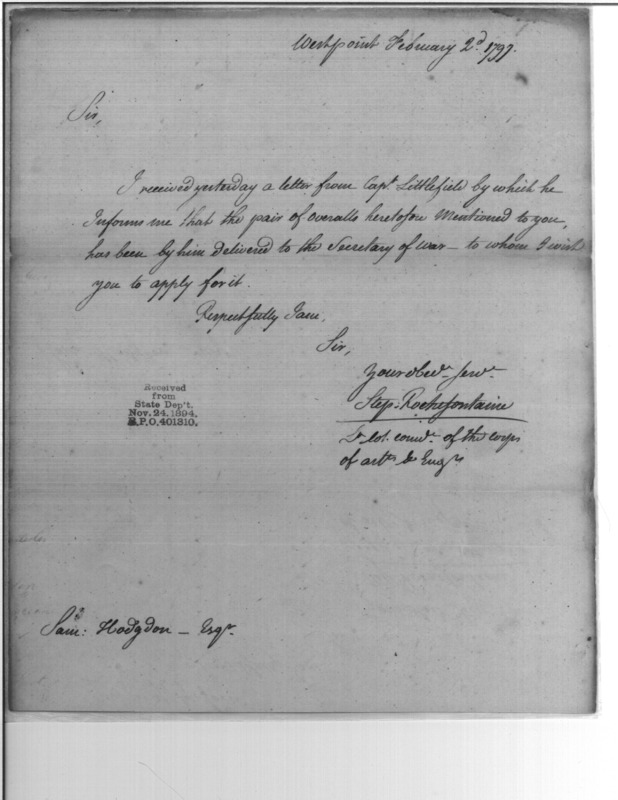 Westpoint February 2d. 1797.
Sir,
I received yesterday a letter from Capt. Littlefield by which he
Informs me that the pair of overalls heretofore Mentioned to you,
has been by him delivered to the Secretary of war – to whom I wish
you to apply for it.
Respectfully I am,
Sir,
your obedt. Servt.
Step. Rochefontaine
Lt col. comdt. of the corps
of artts & Engrs
Received
from
State Dep't.
Nov. 24. 1894.
R.P.O. 401310.
Saml: Hodgdon – Esqr.